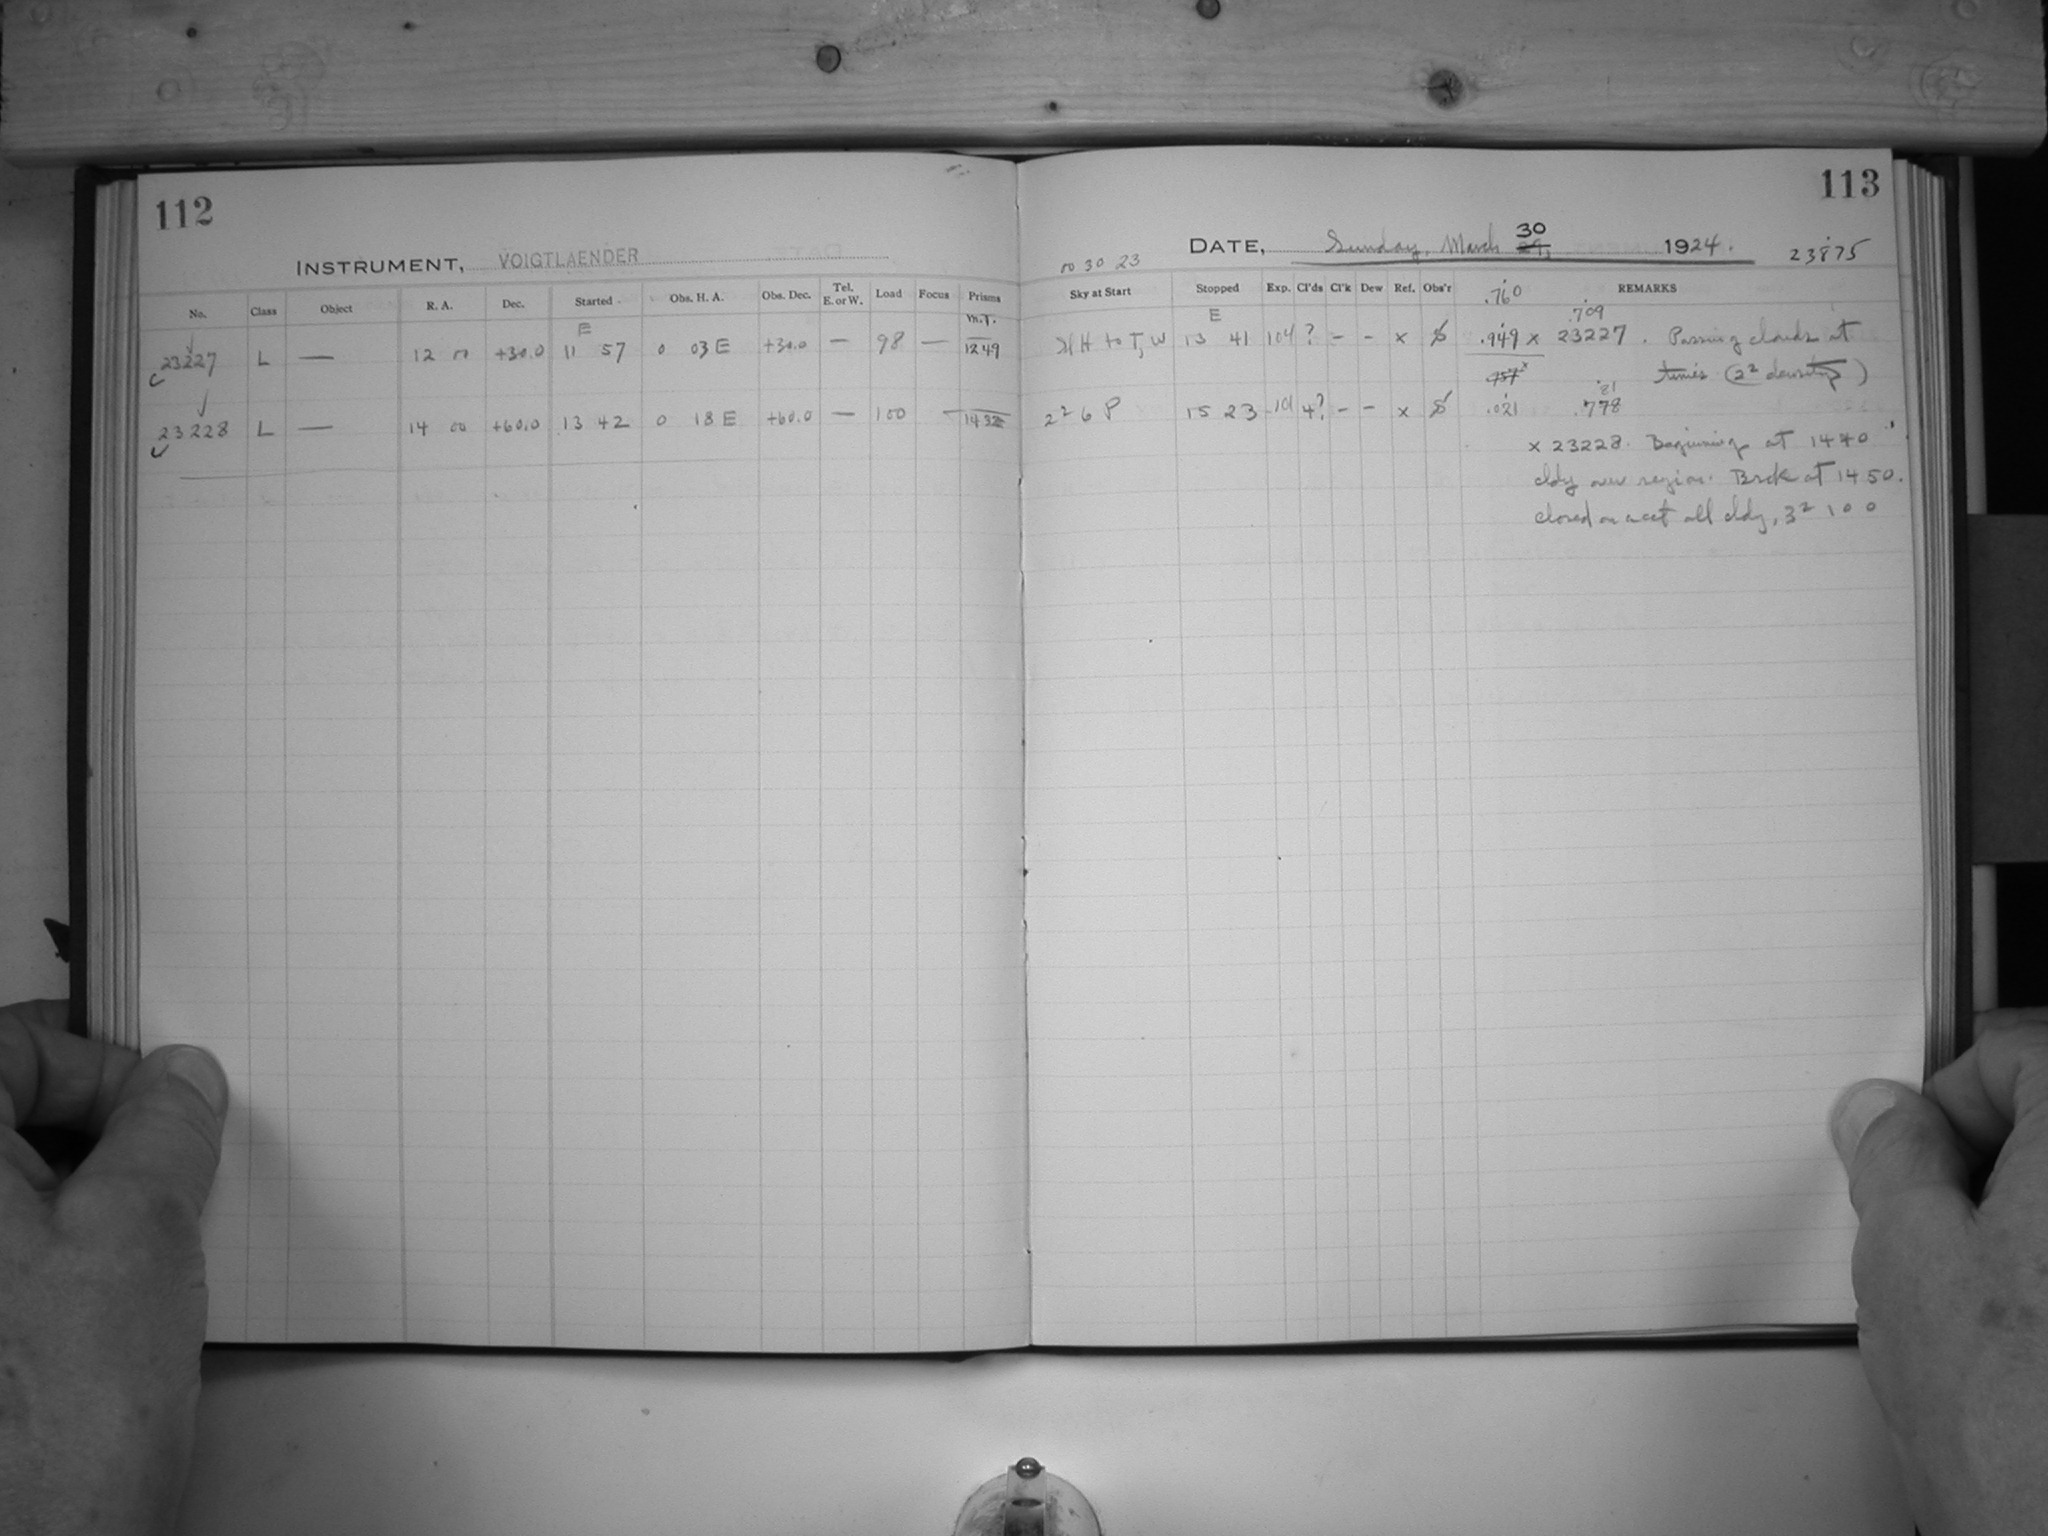 112
INSTRUMENT, VOIGTLAENDER
No. Class Object R. A. Dec. Started Obs. H. A. Obs. Dec. Tel. E. or W. Load Focus Prisms
E M.T.
23227 L — 12 00 +30.0 11 57 0 03 E +30.0 — 98 — 1249
23228 L — 14 00 +60.0 13 42 0 18 E +60.0 — 100 — 1432
113
DATE, Sunday, March 30 29, 1924.
00 30 23 23875
Sky at Start Stopped Exp. Cl'ds Cl'k Dew Ref. Obs'r .760 REMARKS
E .709
H to T, W 13 41 104 ? – – x .949 x 23227. Passing clouds at
.757 times (2² density)
.81
2² 6 P 15 23 101 4? – – x .021 .778
x 23228. Beginning at 1440
cldy over region. Brck at 1450.
closed on acct all cldy, 3² 100